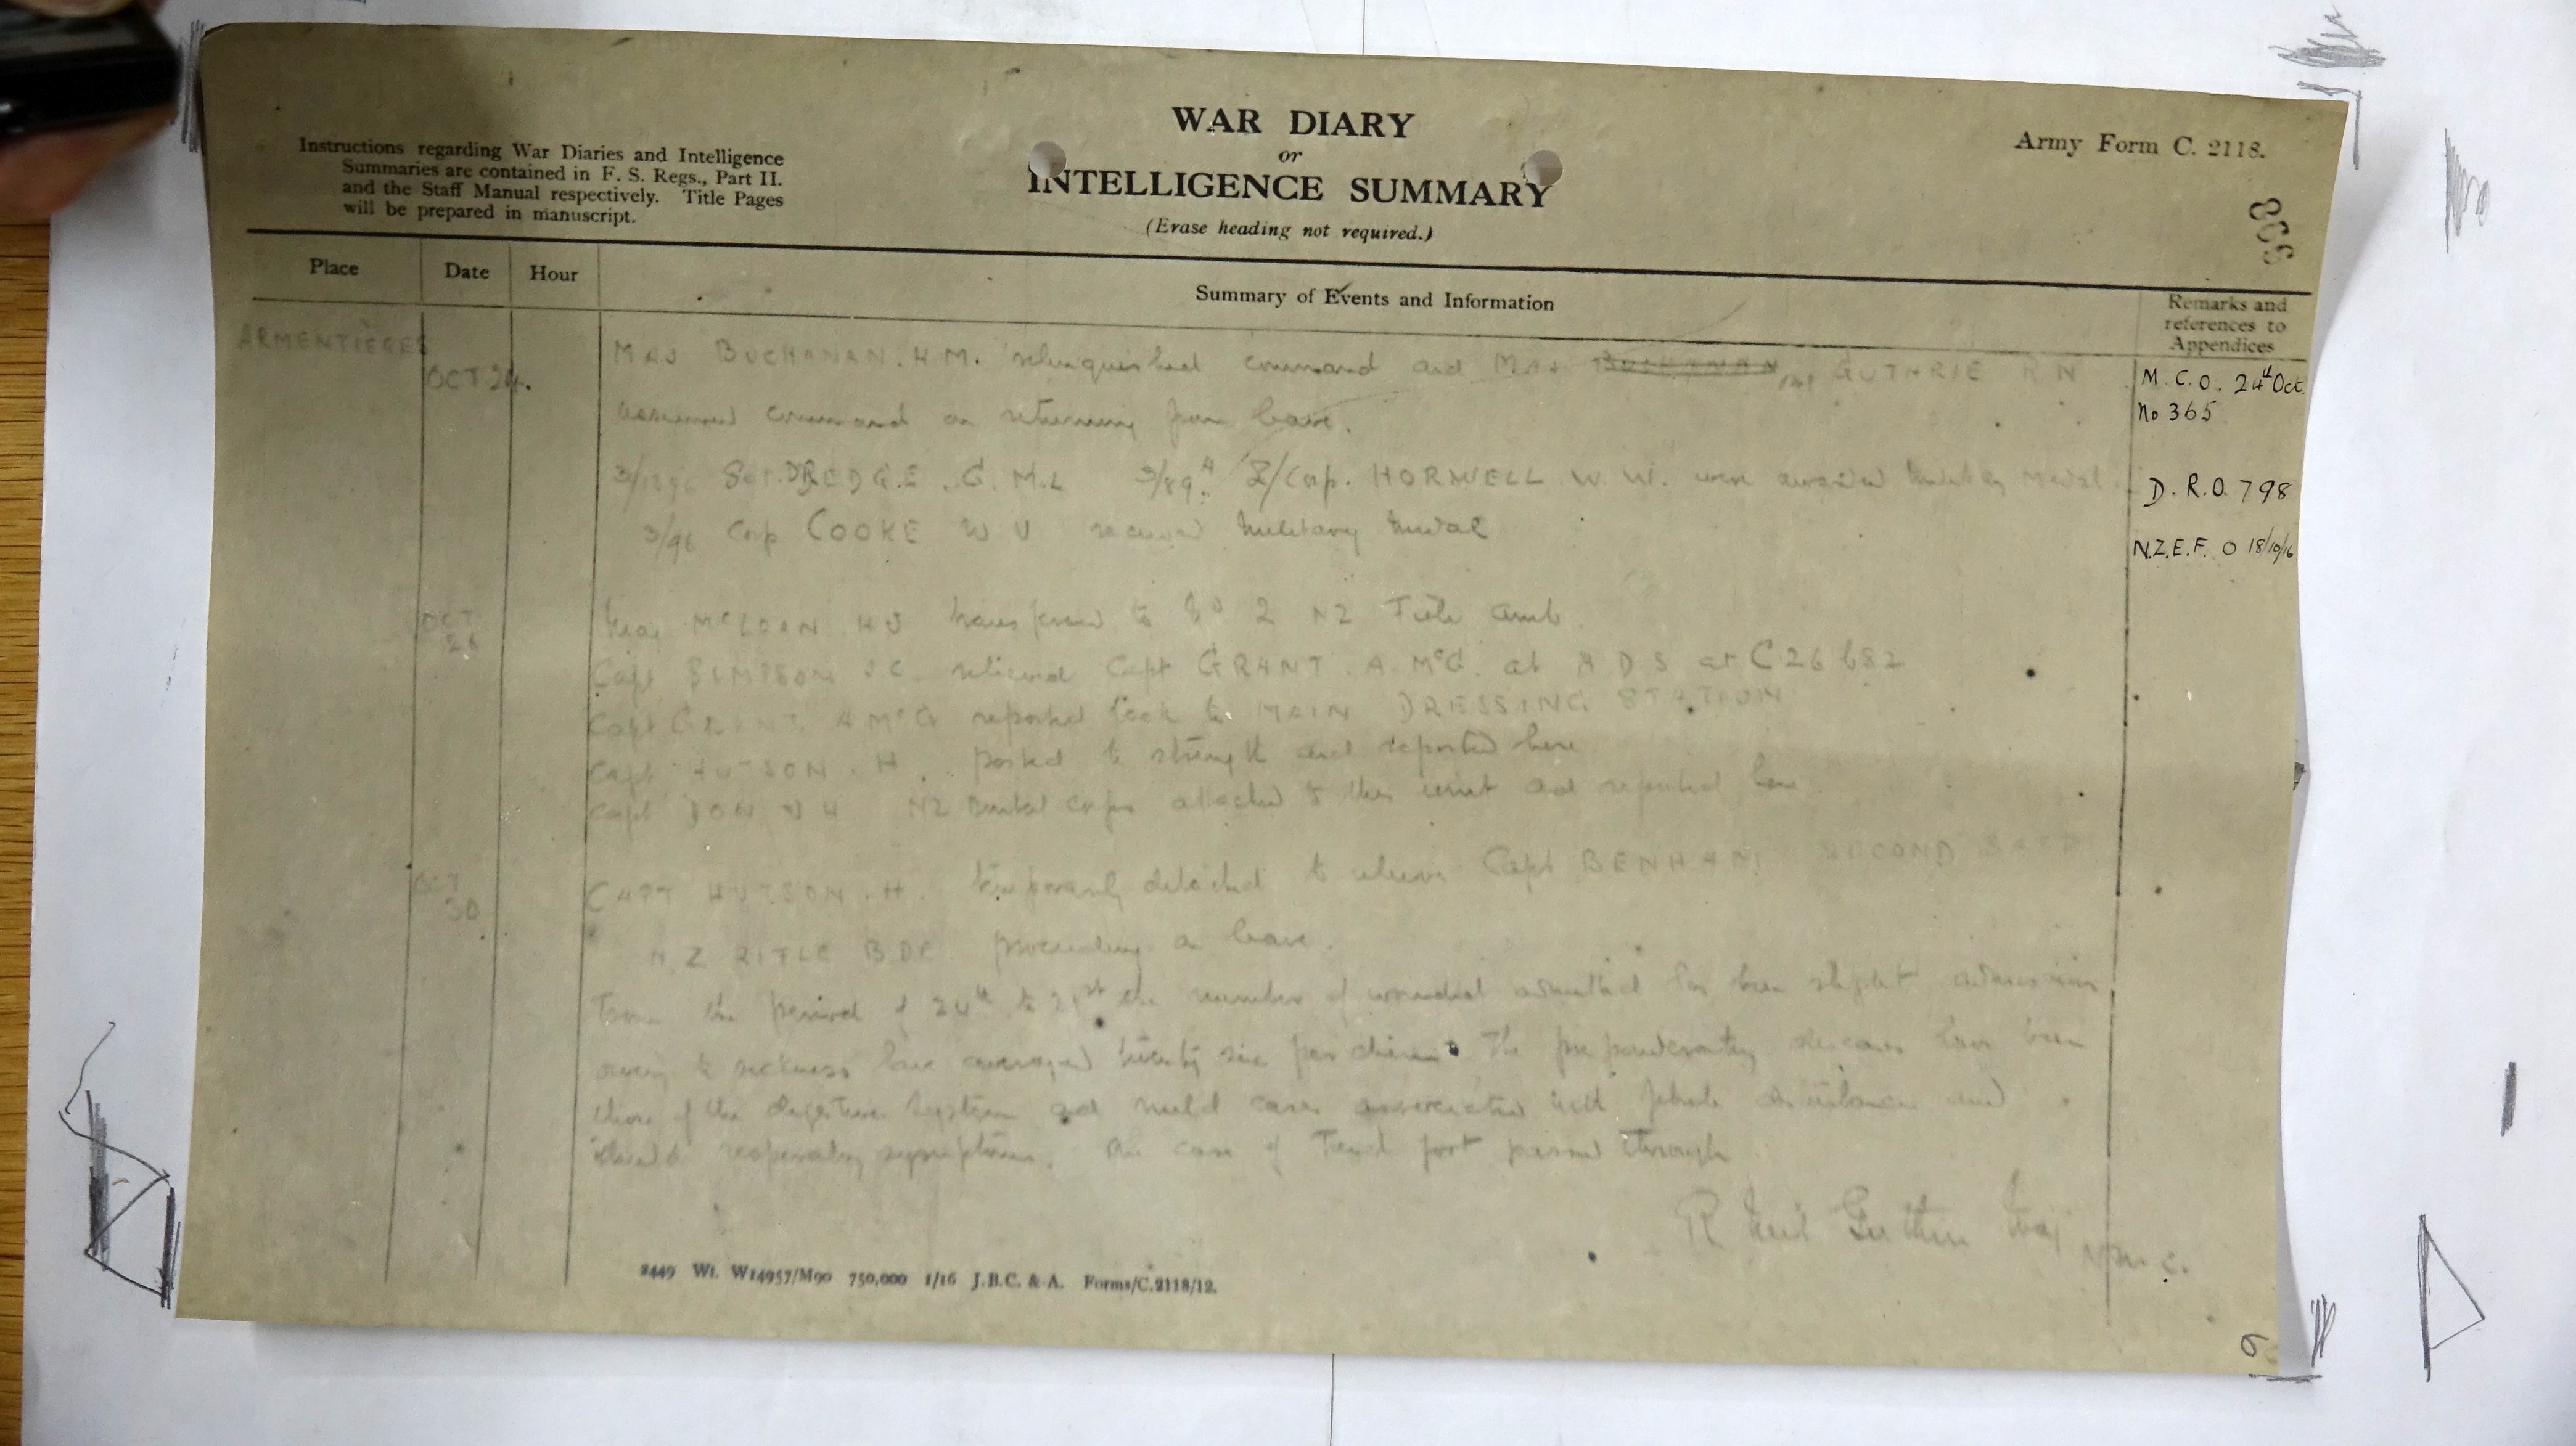 WAR DIARY
or
INTELLIGENCE SUMMARY
(Erase heading not required.)
Army Form C. 2118.
Instructions regarding War Diaries and Intelligence
Summaries are contained in F. S. Regs., Part II.
and the Staff Manual respectively. Title Pages
will be prepared in manuscript.
808
Place Date Hour Summary of Events and Information Remarks and references to Appendices
ARMENTIÈRES
OCT 24. MAJ BUCHANAN. H.M. relinquished command and MAJ GUTHRIE R N M.C.O. 24th Oct.
assumed command on returning from leave. No 365
Sgt. DREDGE. G. M.L L/Corp. HORWELL W. W. were awarded Military Medal. D.R.O. 798
3/96 Corp COOKE W V received Military Medal N.Z.E.F. O 18/10/16
OCT McLEAN HJ transferred to No 2 NZ Field Amb.
Capt SIMPSON J C. relieved Capt GRANT. A. McG. at A D S at C 26 b 8 2
Capt GRANT. A McG reported back to MAIN DRESSING STATION
Capt HUTSON. H. posted to strength and reported here
Capt DON NZ Dental Corps attached to this unit and reported here
OCT 30 CAPT HUTSON. H. temporarily detached to relieve Capt BENHAM SECOND BATT
N.Z RIFLE BDE proceeding on leave.
From the period of 24th to 31st the number of wounded admitted has been slight admissions
owing to sickness have averaged twenty six per diem. The preponderating diseases have been
those of the digestive system and mild cases associated with febrile disturbances and
respiratory symptoms. One case of Trench foot passed through
R Neil Guthrie Maj NZMC.
2449 Wt. W14957/M90 750,000 1/16 J.B.C. & A. Forms/C.2118/12.
6